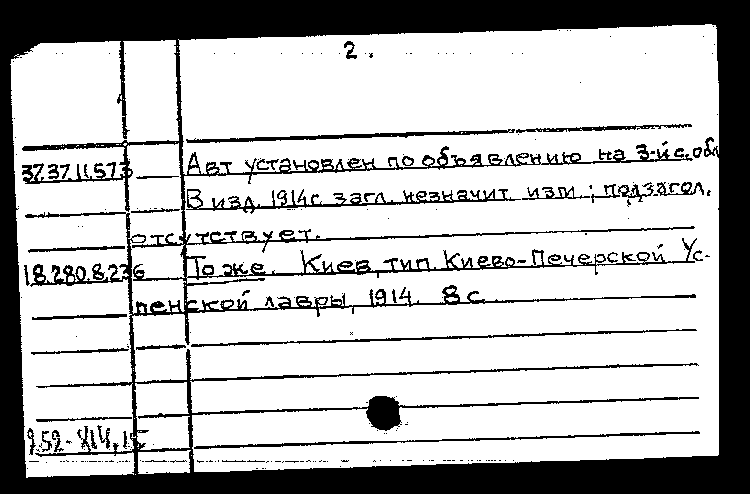 2.
37.37.11.573 Авт установлен по объявлению на 3-й с. обл
В изд. 1914 г. загл. незначит. изм ; подзагол.
отсутствует.
18.280.8.236 То же. Киев, тип. Киево-Печерской Ус-
пенской лавры, 1914. 8 с.